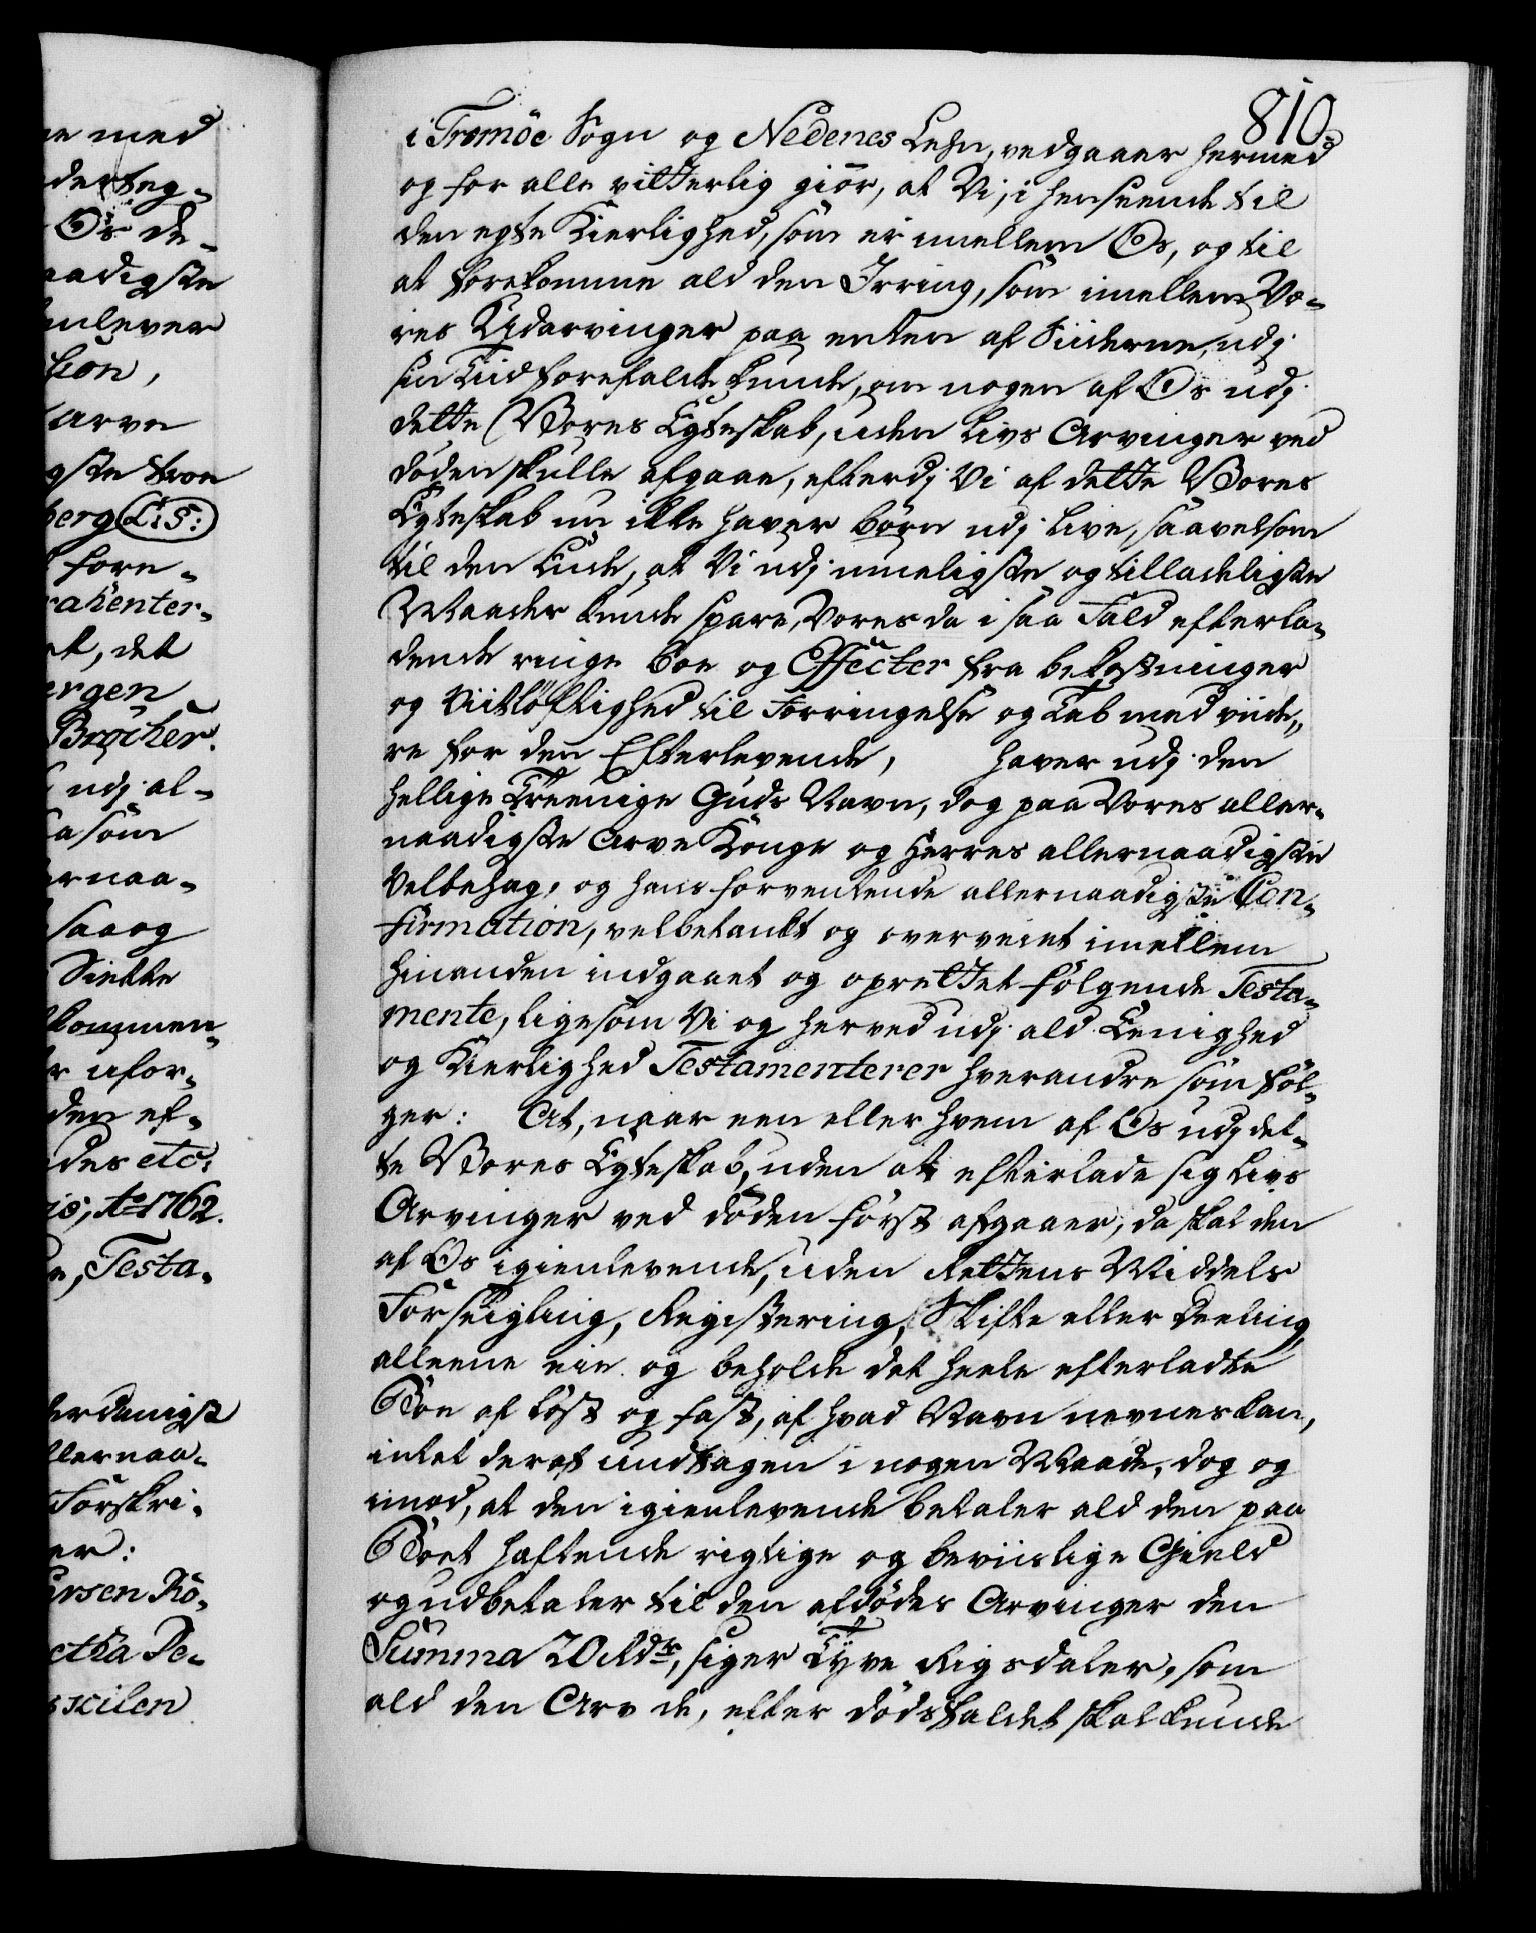 810
i Tromöe Sogn og Nedenes Lehn, vedgaaer hermed
og for alle vitterlig giör, at Vi, i henseende til
den egte Kierlighed, som er imellem Os, og til
at forekomme ald den Irring, som imellem Vo-
res Udarvinger paa enten af Siiderne, udj
sin Tiid forefalde kunde, om nogen af Os udj
dette Vores Egteskab, uden Livs Arvinger ved
döden skulle afgaae, efterdj Vi af dette Vores
Egteskab nu ikke haver börn udj Live, saavelsom
til den Ende, at Vi udj mueligste og tilladeligste
Maader kunde spare, Vores da i saa Fald efterla-
dende ringe boe og Effecter fra bekostninger
og Viitlöftighed til Forringelse og Tab med viide-
re for den Efterlevende, haver udj den
hellige Treenige Guds Navn, dog paa Vores aller-
naadigste Arve Konge og Herres allernaadigste
Velbehag, og hans forventende allernaadigste Con-
firmation, velbetænkt og overveiet imellem
hinanden indgaaet og oprettet fölgende Testa-
mente, ligesom Vi og herved udj ald Eenighed
og Kierlighed Testamenterer hverandre som föl-
ger: At, naar een eller hvem af Os udj det-
te Vores Egteskab, uden at efterlade sig Livs
Arvinger ved döden först afgaaer, da skal den
af Os igienlevende, uden Rettens Middels
Forseigling, Registering, Skifte eller Deeling
alleene eie og beholde det heele efterladte
Boe af löst og fast, af hvad Navn nevnes kan,
intet deraf undtagen i nogen Maade, dog og
imod, at den igienlevende betaler ald den paa
Boet haftende rigtige og beviislige Gield
og udbetaler til den afdödes Arvinger den
Summa 20 Rdr, siger Tyve Rigsdaler, som
ald den Arv de, efter dödsfaldet skal kunde